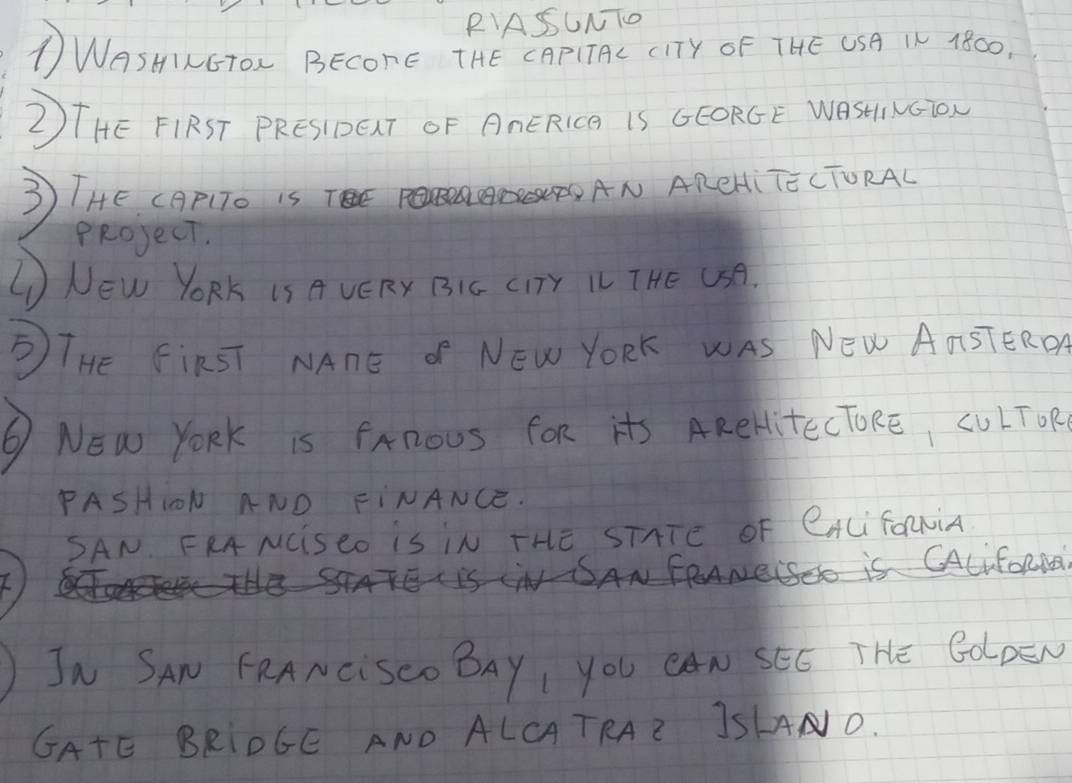 RIASSUNTO
1) WASHINGTON BECOME THE CAPITAL CITY OF THE USA IN 1800.
2) THE FIRST PRESIDENT OF AMERICA IS GEORGE WASHINGTON
3) THE CAPITO IS AN ARCHITECTURAL
PROJECT.
4) NEW YORK IS A VERY BIG CITY IN THE USA.
5) THE FIRST NAME OF NEW YORK WAS NEW AMSTERDA
6) NEW YORK IS FAMOUS FOR ITS ARCHITECTURE, CULTURE
FASHION AND FINANCE.
SAN FRANCISCO IS IN THE STATE OF CALIFORNIA
7) THE STATE IS IN SAN FRANCISCO IS CALIFORNI
) IN SAN FRANCISCO BAY, YOU CAN SEE THE GOLDEN
GATE BRIDGE AND ALCATRAZ ISLAND.